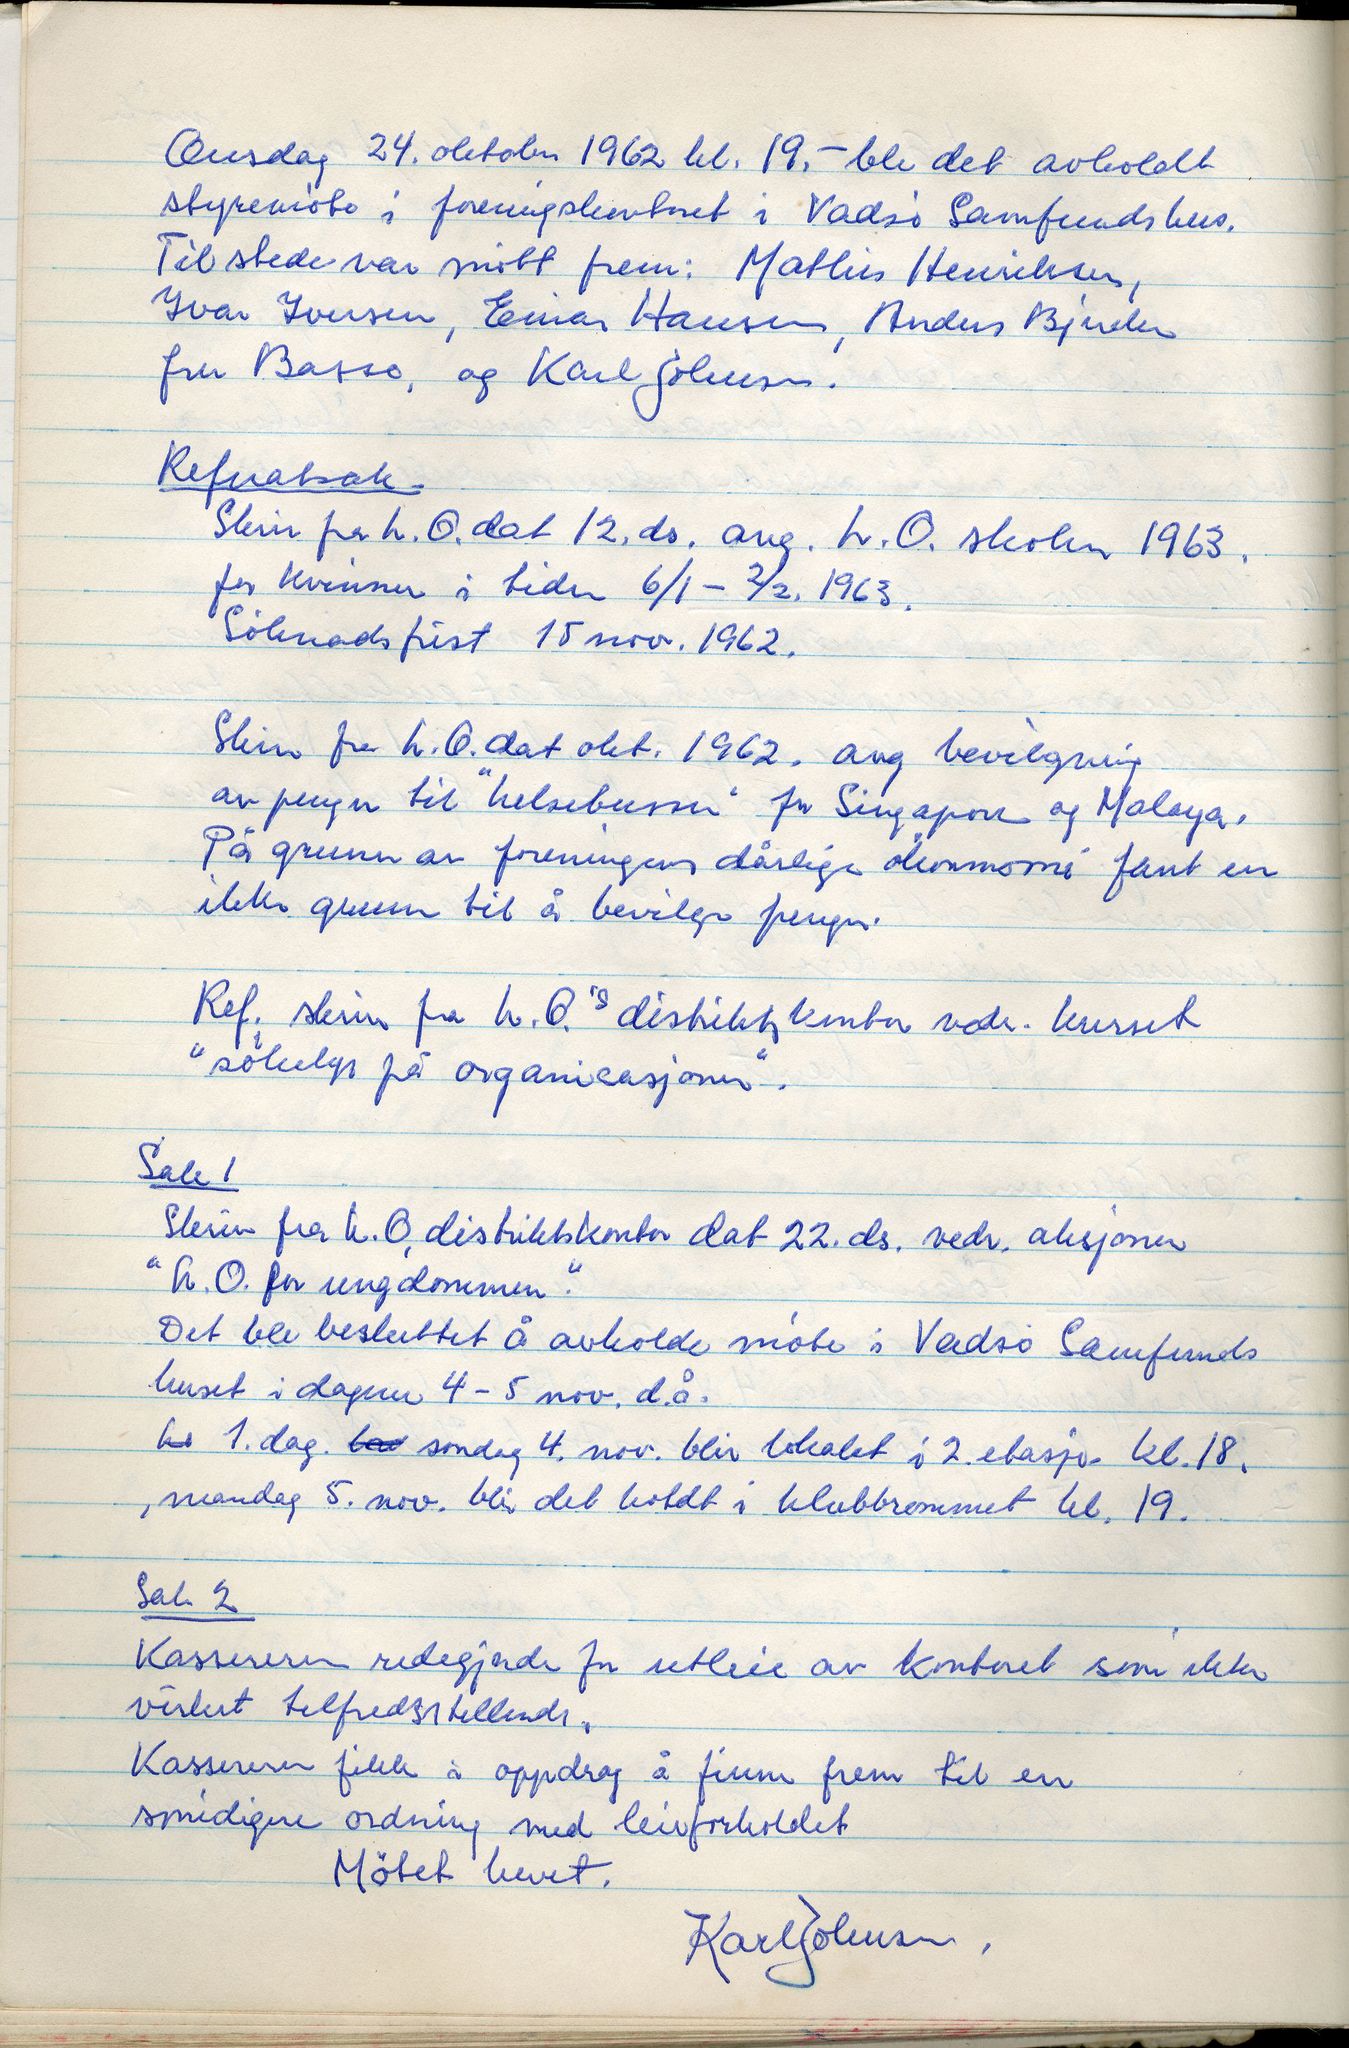 Onsdag 24. oktober 1962 kl. 19.- ble det avholdt
styremöte i foreningskontoret i Vadsö Samfundshus.
Til stede var mött frem: Mathis Henriksen,
Ivar Iversen, Einar Hansen, Anders Bjerken
fru Basso, og Karl Johnsen.
Referatsak.
Skriv fra L.O. dat 12. ds. ang. L.O. skolen 1963.
for kvinner i tiden 6/1 – 2/2. 1963.
Söknadsfrist 15 nov. 1962.
Skriv fra L.O. dat okt. 1962. ang bevilgning
av penger til "helsebussen" for Singapore og Malaya.
På grunn av foreningens dårlige ökonomi fant en
ikke grunn til å bevilge penger.
Ref. skriv fra L.O.'s distriktskontor vedr. kurset
"sökelys på organisasjonen".
Sak 1
Skriv fra L.O. distriktskontor dat 22. ds. vedr. aksjonen
"L.O. for ungdommen".
Det ble besluttet å avholde möte i Vadsö Samfunds
huset i dagene 4 – 5 nov. d.å.
1. dag. söndag 4. nov. blir lokalet i 2. etasje kl. 18.
, mandag 5. nov. blir det holdt i klubbrommet kl. 19.
Sak 2
Kassereren redegjorde for utleie av kontoret som ikke
virket tilfredsstillende.
Kassereren fikk i oppdrag å finne frem til en
smidigere ordning med leieforholdet
Mötet hevet.
Karl Johnsen.